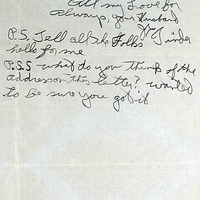 all my Love for
always, your Husband
P.S. Tell all the Folks
hello for me
P.SS what do you think of the
address on this letter? wanted
to be sure you got it